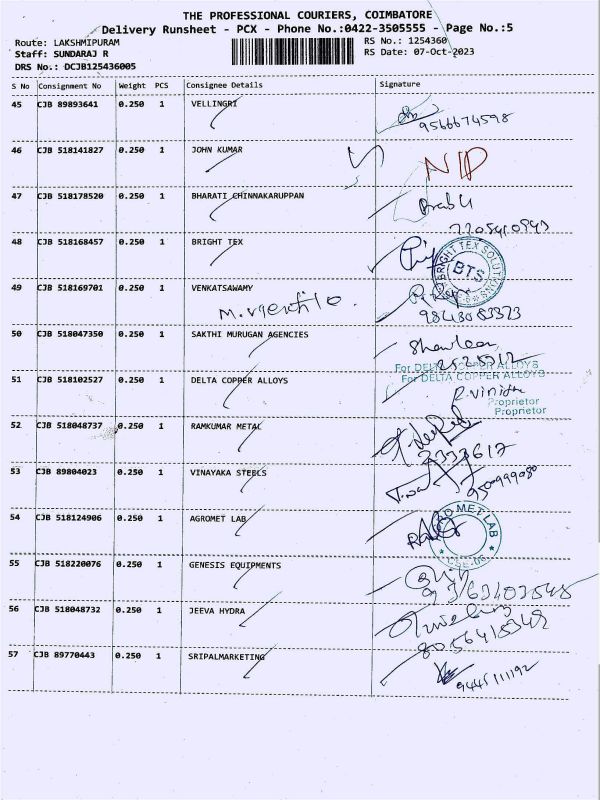 THE PROFESSIONAL COURIERS, COIMBATORE
Delivery Runsheet - PCX - Phone No.:0422-3505555 - Page No.:5
Route: LAKSHMIPURAM RS No.: 1254360
Staff: SUNDARAJ R RS Date: 07-Oct-2023
DRS No.: DCJB125436005
S No Consignment No Weight PCS Consignee Details Signature
45 CJB 89893641 0.250 1 VELLINGRI
9566674598
46 CJB 518141827 0.250 1 JOHN KUMAR N/D
47 CJB 518178520 0.250 1 BHARATI CHINNAKARUPPAN
48 CJB 518168457 0.250 1 BRIGHT TEX
BRIGHT TEX SOLUTIONS
BTS
49 CJB 518169701 0.250 1 VENKATSAWAMY
50 CJB 518047350 0.250 1 SAKTHI MURUGAN AGENCIES
For DELTA COPPER ALLOYS
51 CJB 518102527 0.250 1 DELTA COPPER ALLOYS For DELTA COPPER ALLOYS
Proprietor
Proprietor
52 CJB 518048737 0.250 1 RAMKUMAR METAL
53 CJB 89804023 0.250 1 VINAYAKA STEELS
9500999080
54 CJB 518124906 0.250 1 AGROMET LAB
MET LAB
55 CJB 518220076 0.250 1 GENESIS EQUIPMENTS
56 CJB 518048732 0.250 1 JEEVA HYDRA
8056415349
57 CJB 89770443 0.250 1 SRIPALMARKETING
9445111192